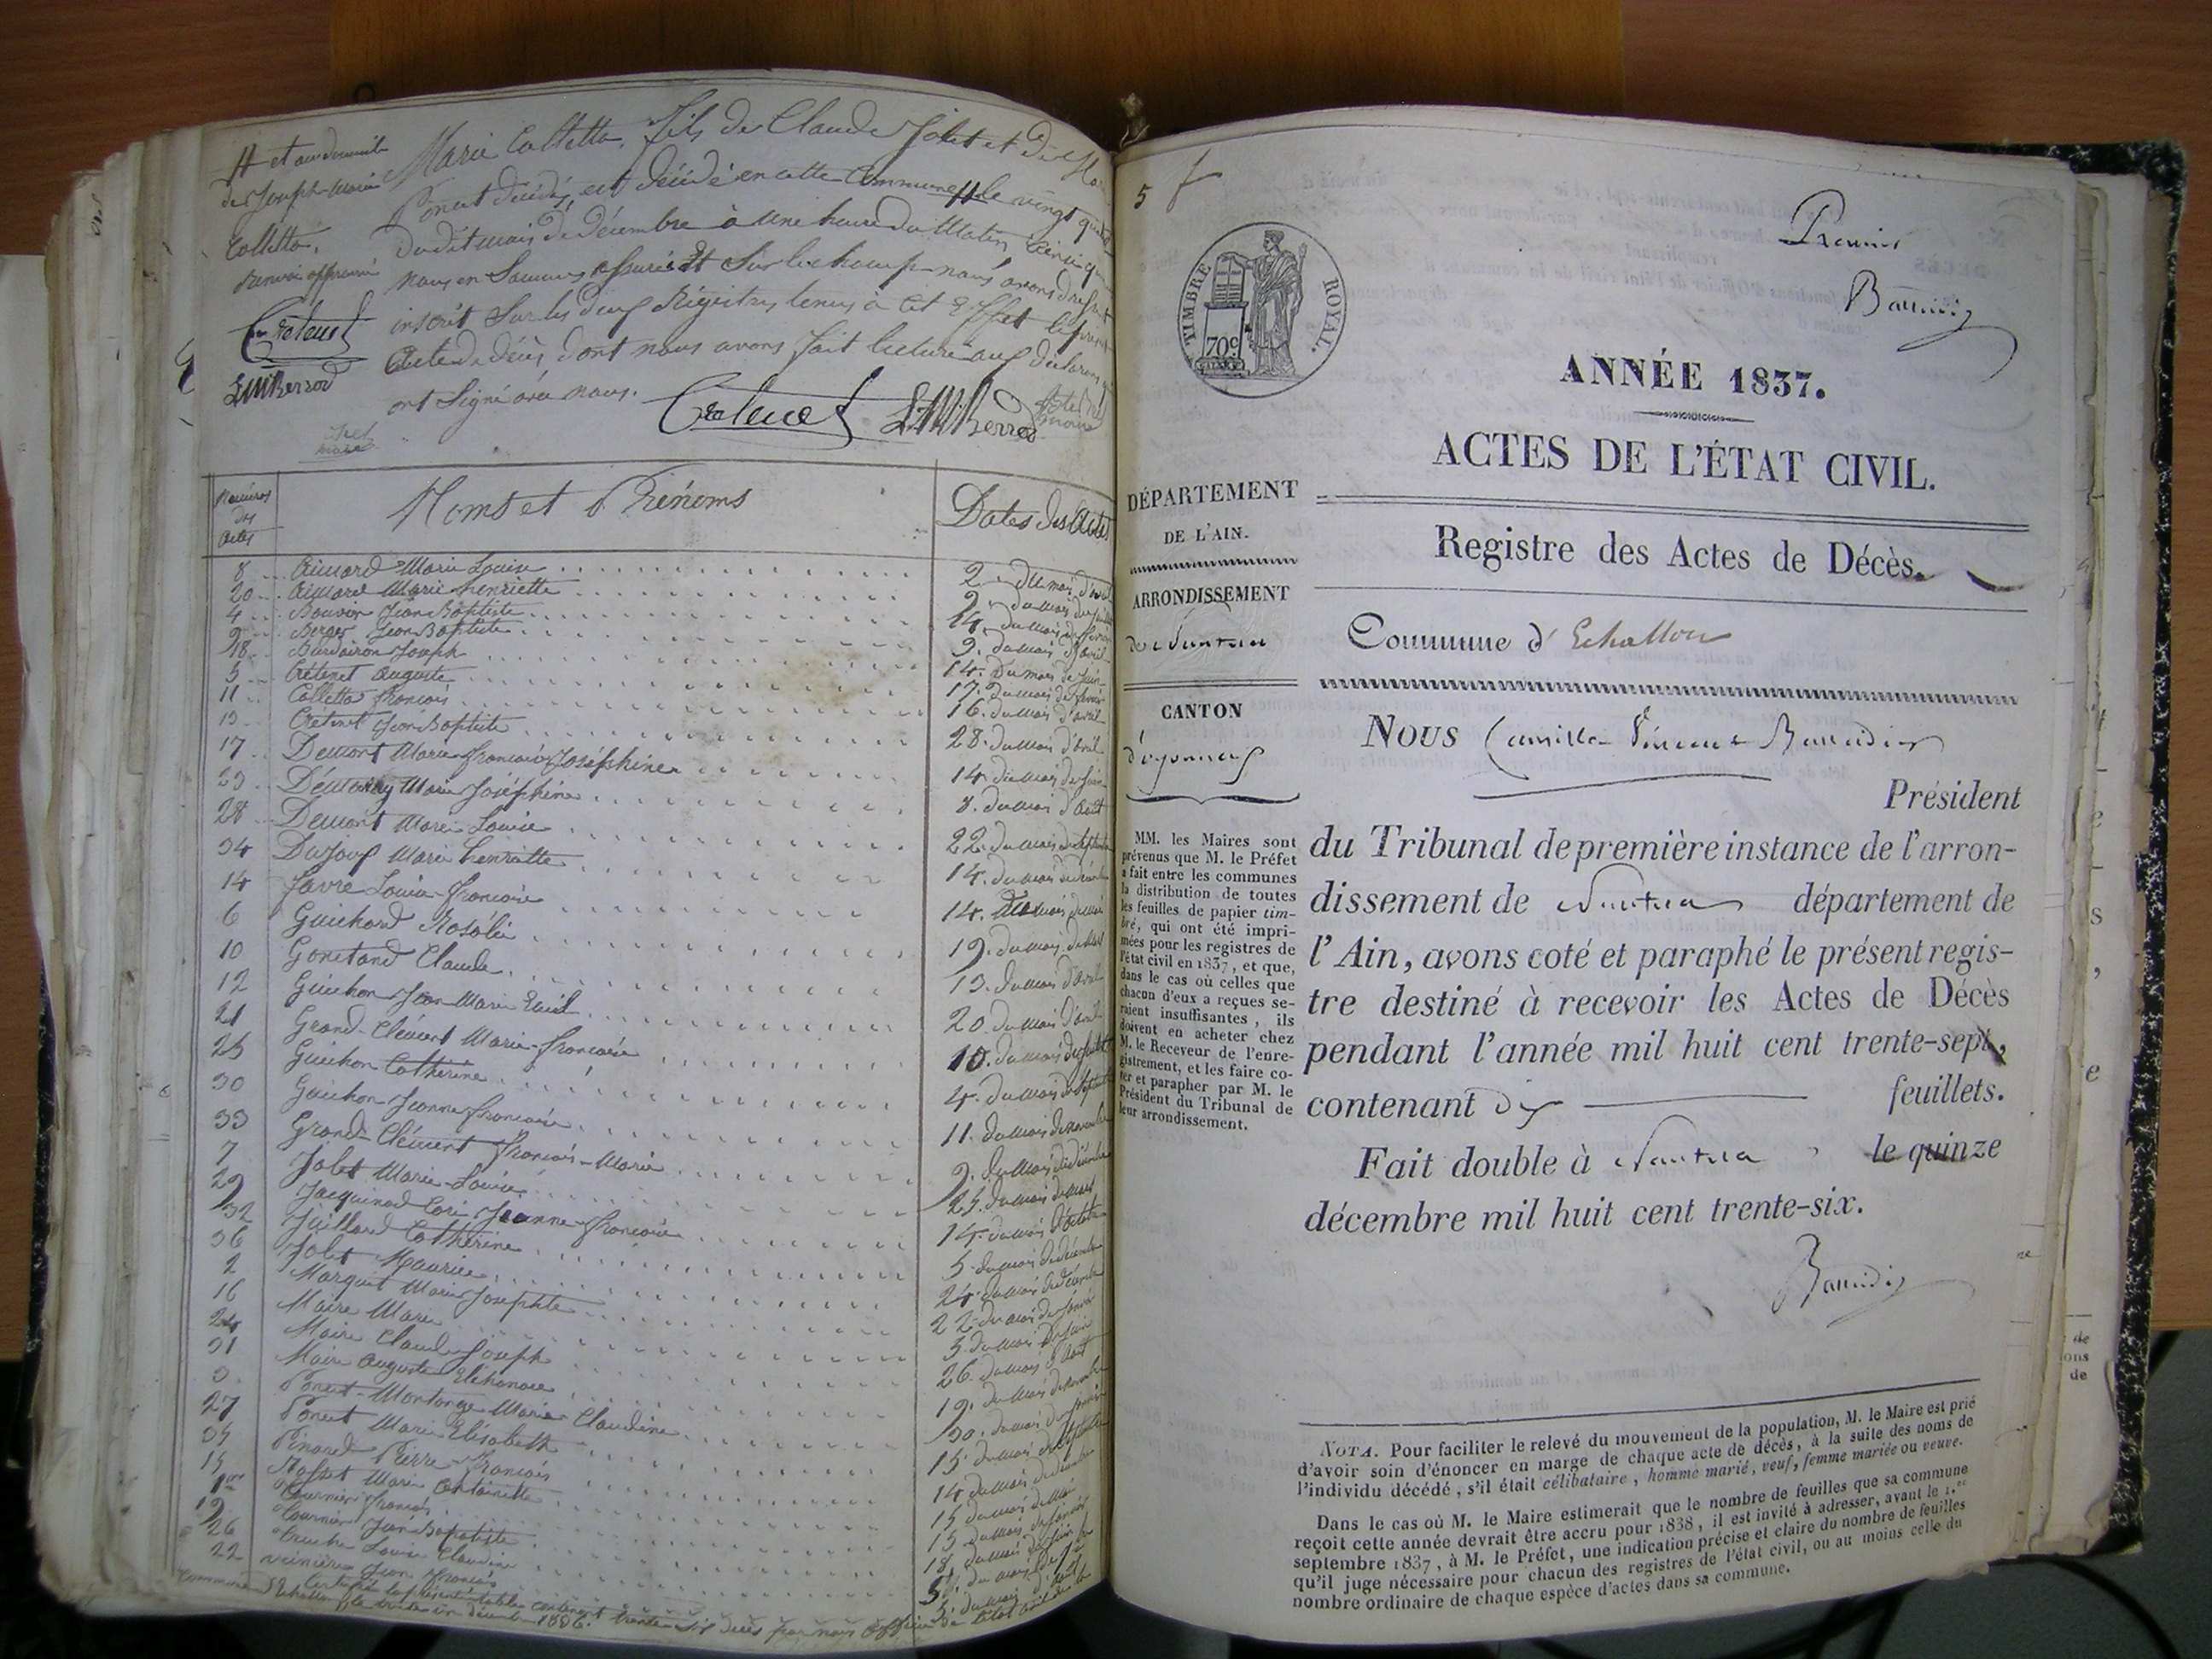 # et au domicile
de Joseph-Marie
Colletta.
renvoi approuvé
Crétenet
LMBerrod
Marie Colletta, fils de Claude Jolet et de
Ponet décédés, est décédé en cette Commune # le vingt
dudit mois de Décembre à une heure du Matin, ainsi que
nous en sommes assurés et sur le champ nous avons dressé et
inscrit sur les deux Régistres tenus à cet effet le présent
Acte de décès dont nous avons fait lecture aux déclarans
ont signé avec nous.
Crétenet LMBerrod
Numéros des Actes
Noms et Prénoms
Dates des Actes
8 Aimard Marie Louise 2. du mois d'avril
20 Aimard Marie henriette 2. du mois de juillet
4 Bouvier Jean Baptiste 14. du mois de février
9 Berger Jean Baptiste 9. du mois d'avril
18 Burdairon Joseph 14. du mois de juin
5 Crétenet Auguste 17. du mois de février
11 Colletta François 16. du mois d'avril
13 Crétenet Jean Baptiste 28. du mois d'avril
17 Demont Marie-Françoise Joséphine 14. du mois de juin
23 Marie Joséphine 8. du mois d'Août
28 Demont Marie Louise 22. du mois de septembre
34 Marie henriette 14. du mois de décembre
14 Favre Louise-Françoise 14. du mois de mai
6 Guichard Rosalie 19. du mois de mars
10 Gonetand Claude 13. du mois d'avril
12 Guichon Jean-Marie Emil 20. du mois d'avril
21 Grand-Clément Marie-Françoise 10. du mois de juillet
25 Guichon Catherine 4. du mois de septembre
30 Guichon Jeanne Françoise 11. du mois de novembre
33 Grand-Clément François-Marie 9. du mois de décembre
7 Jolet Marie-Louise 25. du mois de mars
29 Jeanne-Françoise 14. du mois d'octobre
32 Juillard Catherine 5. du mois de décembre
36 Jolet Maurice 24. du mois de décembre
2 Marquet Marie Josephte 22. du mois de janvier
16 Maire Marie 5. du mois de juin
24 Maire Claude Joseph 26. du mois d'Août
31 Maire Auguste Eléhonore 19. du mois de novembre
3 Ponet-Montange Marie Claudine 30. du mois de janvier
27 Ponet Marie Elisabeth 15. du mois de septembre
35 Pinard Pierre-François 14. du mois de décembre
15 Marie Antoinette 15. du mois de mai
1er Tournier François 15. du mois de janvier
19 Tournier Jean Baptiste 18. du mois de juin
26 Louise Claudine
22 Jean François
Certifié la présente table contenant trente-six décès par nous officier de l'état civil de la
Commune d'Echallon, le trente un décembre 1836.
5
Premier
Barrudier
TIMBRE ROYAL.
70c
ANNÉE 1837.
ACTES DE L'ÉTAT CIVIL.
DÉPARTEMENT
DE L'AIN.
ARRONDISSEMENT
de Nantua
CANTON
d'oyonnax
MM. les Maires sont
prévenus que M. le Préfet
a fait entre les communes
la distribution de toutes
les feuilles de papier tim-
bré, qui ont été impri-
mées pour les registres de
l'état civil en 1837, et que,
dans le cas où celles que
chacun d'eux a reçues se-
raient insuffisantes, ils
doivent en acheter chez
M. le Receveur de l'enre-
gistrement, et les faire co-
ter et parapher par M. le
Président du Tribunal de
leur arrondissement.
Registre des Actes de Décès.
Commune d'Echallon
NOUS Camille Vincent Barrudier
Président
du Tribunal de première instance de l'arron-
dissement de Nantua département de
l'Ain, avons coté et paraphé le présent regis-
tre destiné à recevoir les Actes de Décès
pendant l'année mil huit cent trente-sept,
contenant dix feuillets.
Fait double à Nantua le quinze
décembre mil huit cent trente-six.
Barrudier
NOTA. Pour faciliter le relevé du mouvement de la population, M. le Maire est prié
d'avoir soin d'énoncer en marge de chaque acte de décès, à la suite des noms de
l'individu décédé, s'il était célibataire, homme marié, veuf, femme mariée ou veuve.
Dans le cas où M. le Maire estimerait que le nombre de feuilles que sa commune
reçoit cette année devrait être accru pour 1838, il est invité à adresser, avant le 1.er
septembre 1837, à M. le Préfet, une indication précise et claire du nombre de feuilles
qu'il juge nécessaire pour chacun des registres de l'état civil, ou au moins celle du
nombre ordinaire de chaque espèce d'actes dans sa commune.